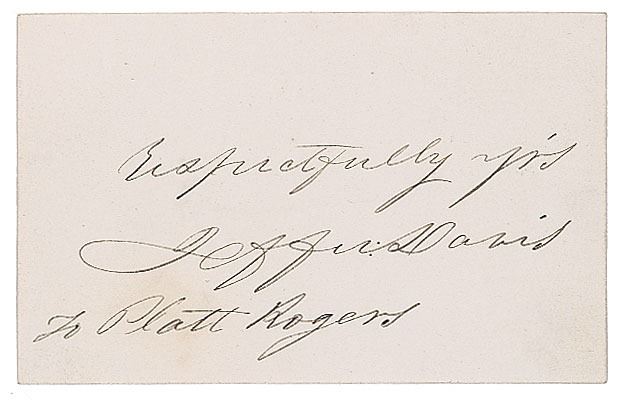 Respectfully yrs
Jeffer: Davis
To Platt Rogers